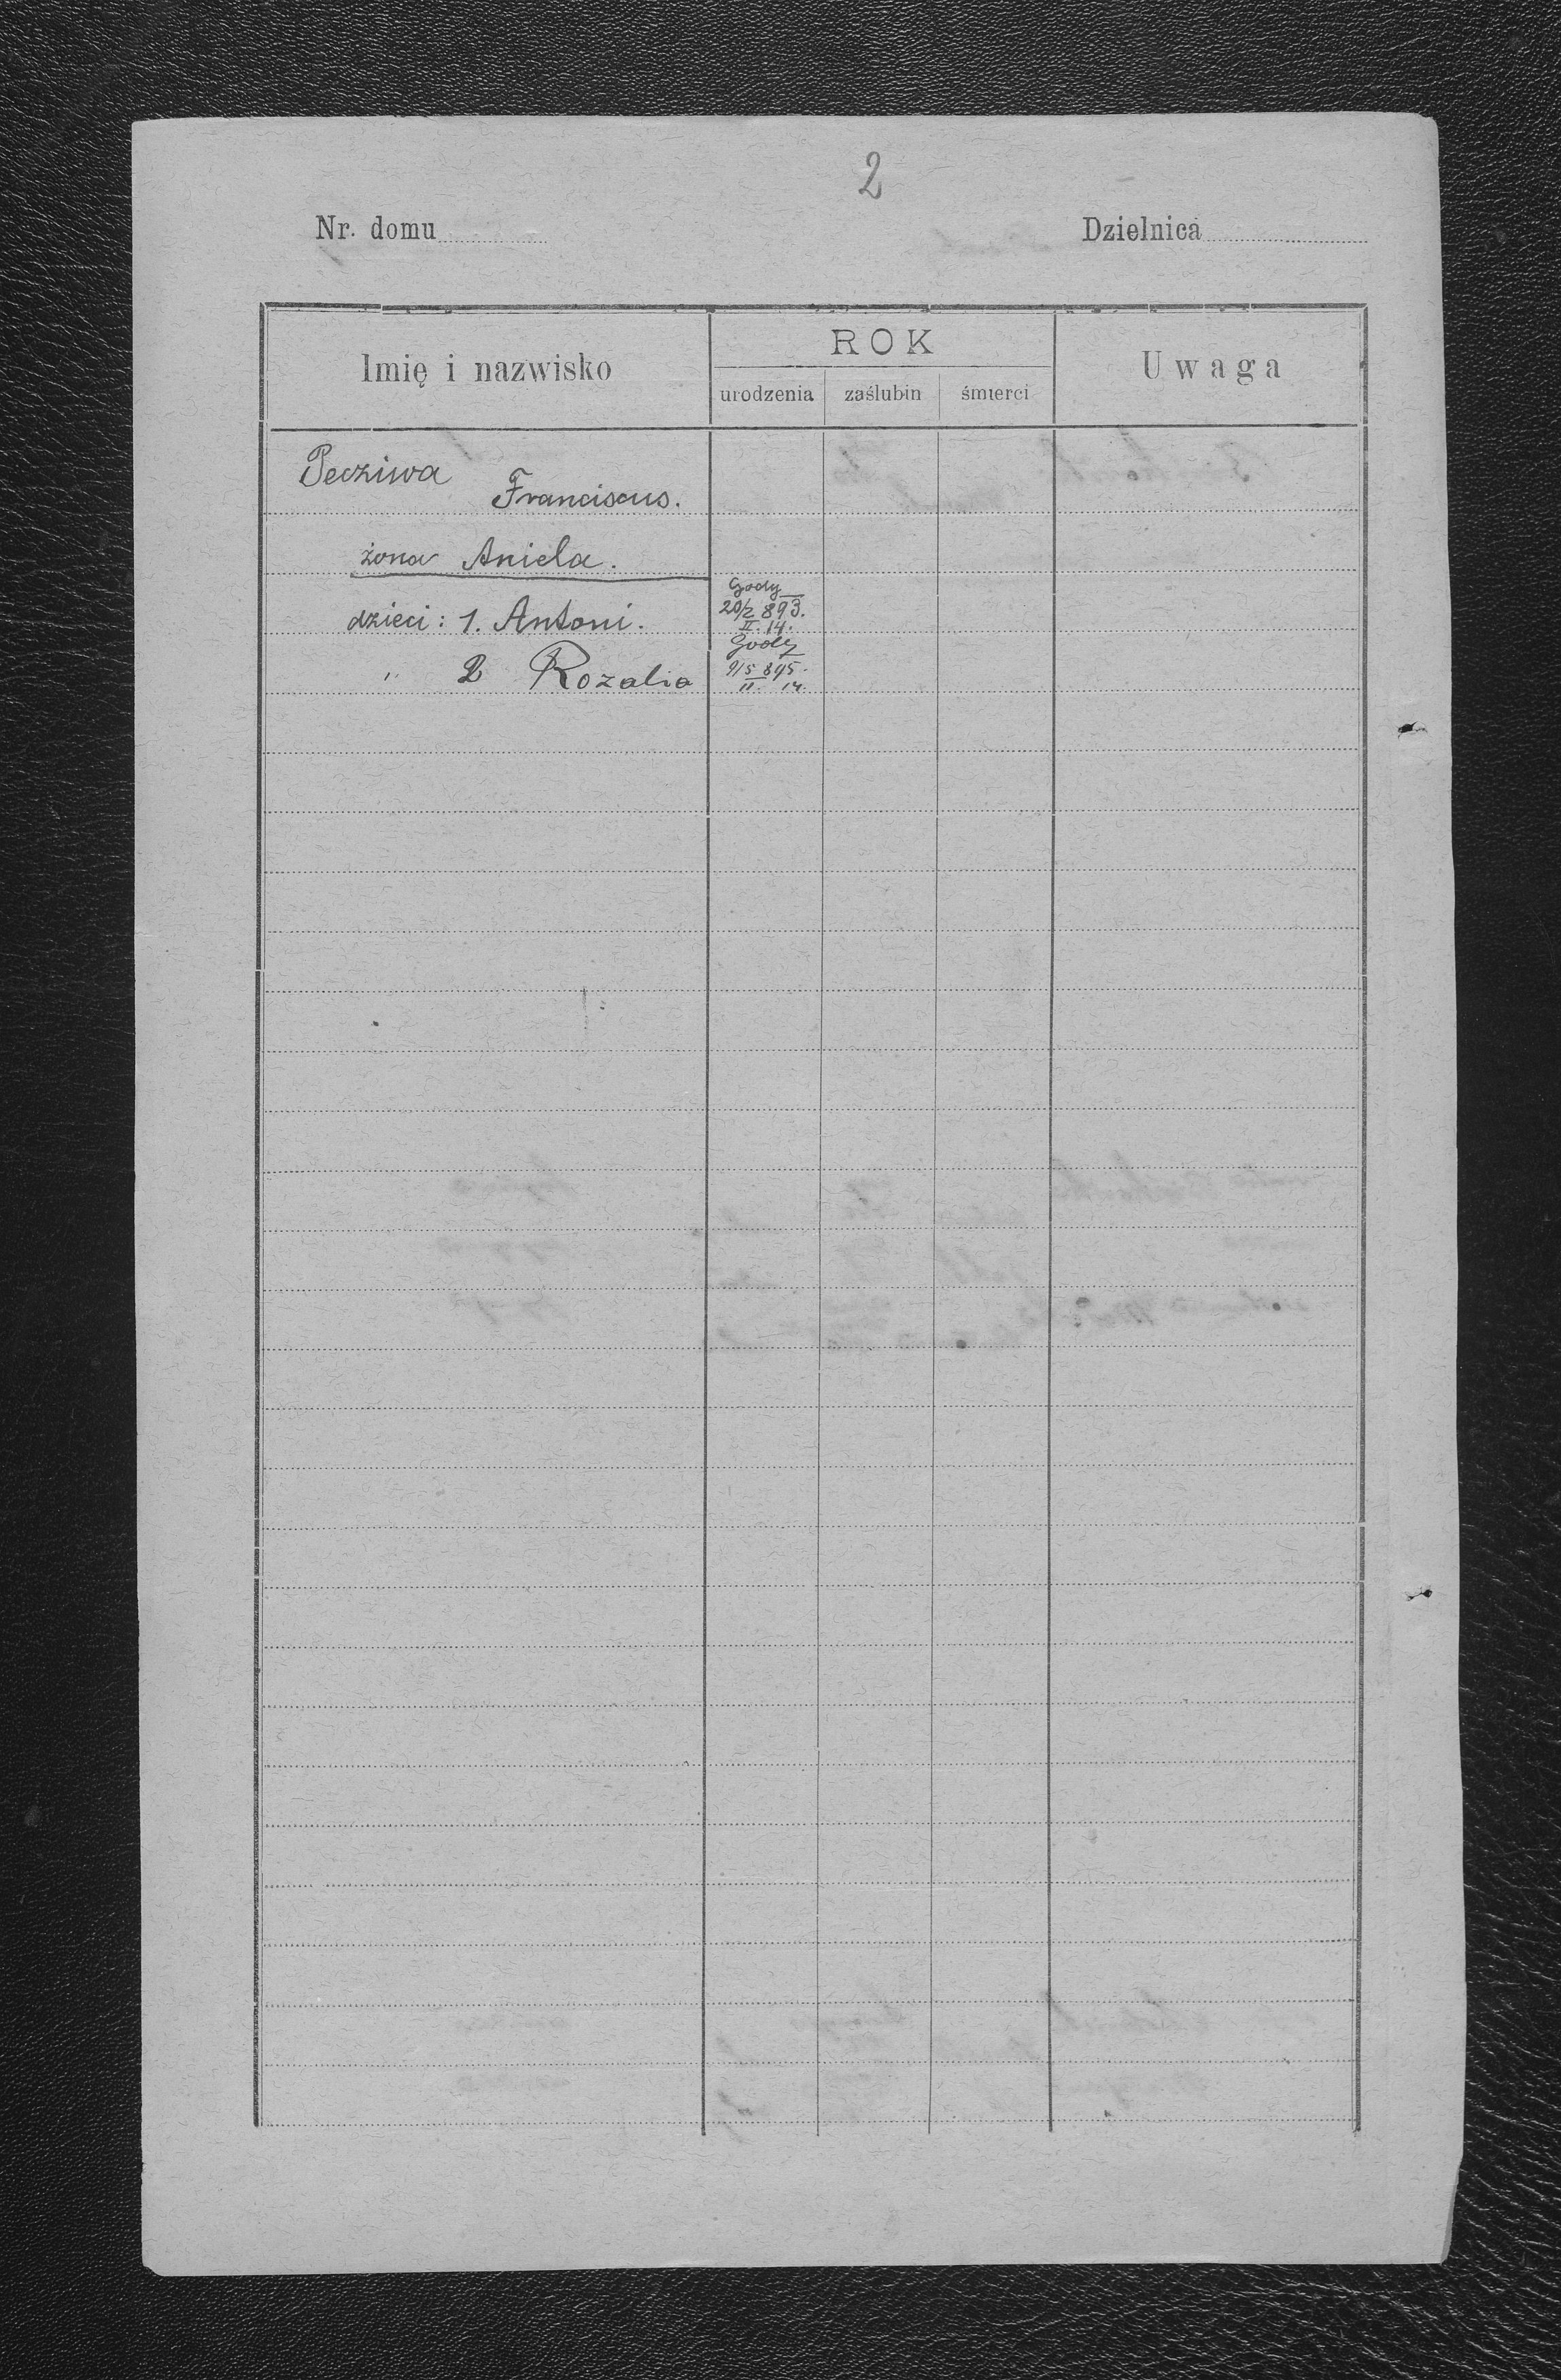 2
Nr. domu
Dzielnica
Imię i nazwisko
ROK
urodzenia zaślubin śmierci
Uwaga
Pecziwa
Franciscus.
żona Aniela.
dzieci: 1. Antoni.
Gody
20/2 893.
II. 14.
" 2 Rozalia
Gody
9/5 895.
II. 14.